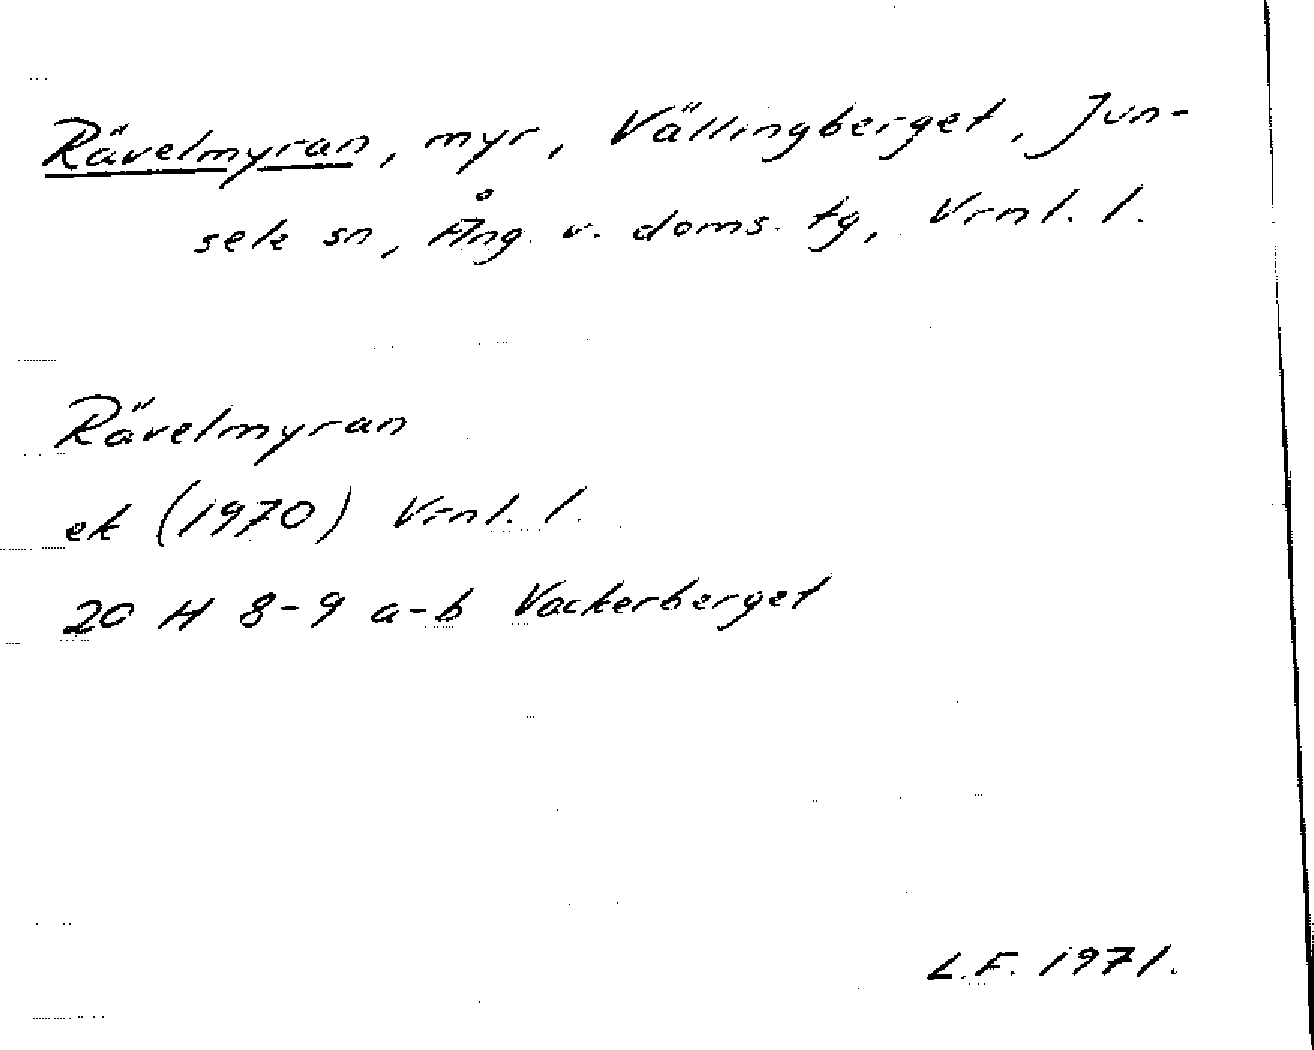 Rävelmyran, myr, Vällingberget, Jun-
sele sn, Ång. v. doms. tg, Vrnl. l.
Rävelmyran
ek (1970) Vrnl. l.
20 H 8-9 a-b Vackerberget
L.F. 1971.